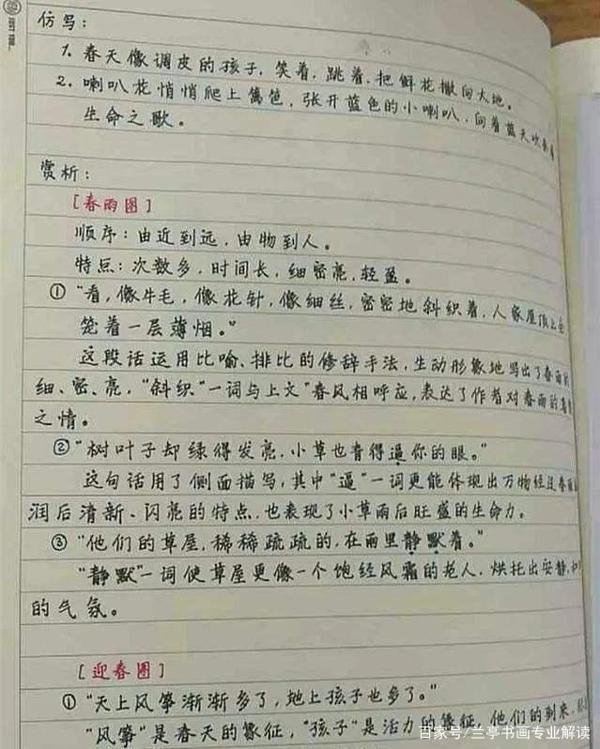 仿写：
1. 春天像调皮的孩子，笑着，跳着，把鲜花撒向大地。
2. 喇叭花悄悄爬上篱笆，张开蓝色的小喇叭，向着蓝天吹奏着
生命之歌。
赏析：
[春雨图]
顺序：由近到远，由物到人。
特点：次数多，时间长，细密亮，轻盈。
①“看，像牛毛，像花针，像细丝，密密地斜织着，人家屋顶上全
笼着一层薄烟。”
这段话运用比喻、排比的修辞手法，生动形象地写出了春雨的
细、密、亮，“斜织”一词与上文“春风相呼应，表达了作者对春雨的喜爱
之情。
②“树叶子却绿得发亮，小草也青得逼你的眼。”
这句话用了侧面描写，其中“逼”一词更能体现出万物经过春雨
润后清新、闪亮的特点，也表现了小草雨后旺盛的生命力。
③“他们的草屋，稀稀疏疏的，在雨里静默着。”
“静默”一词使草屋更像一个饱经风霜的老人，烘托出安静、和
的气氛。
[迎春图]
①“天上风筝渐渐多了，地上孩子也多了。”
“风筝”是春天的象征，“孩子”是活力的象征，他们的到来，
百家号/兰亭书画专业解读